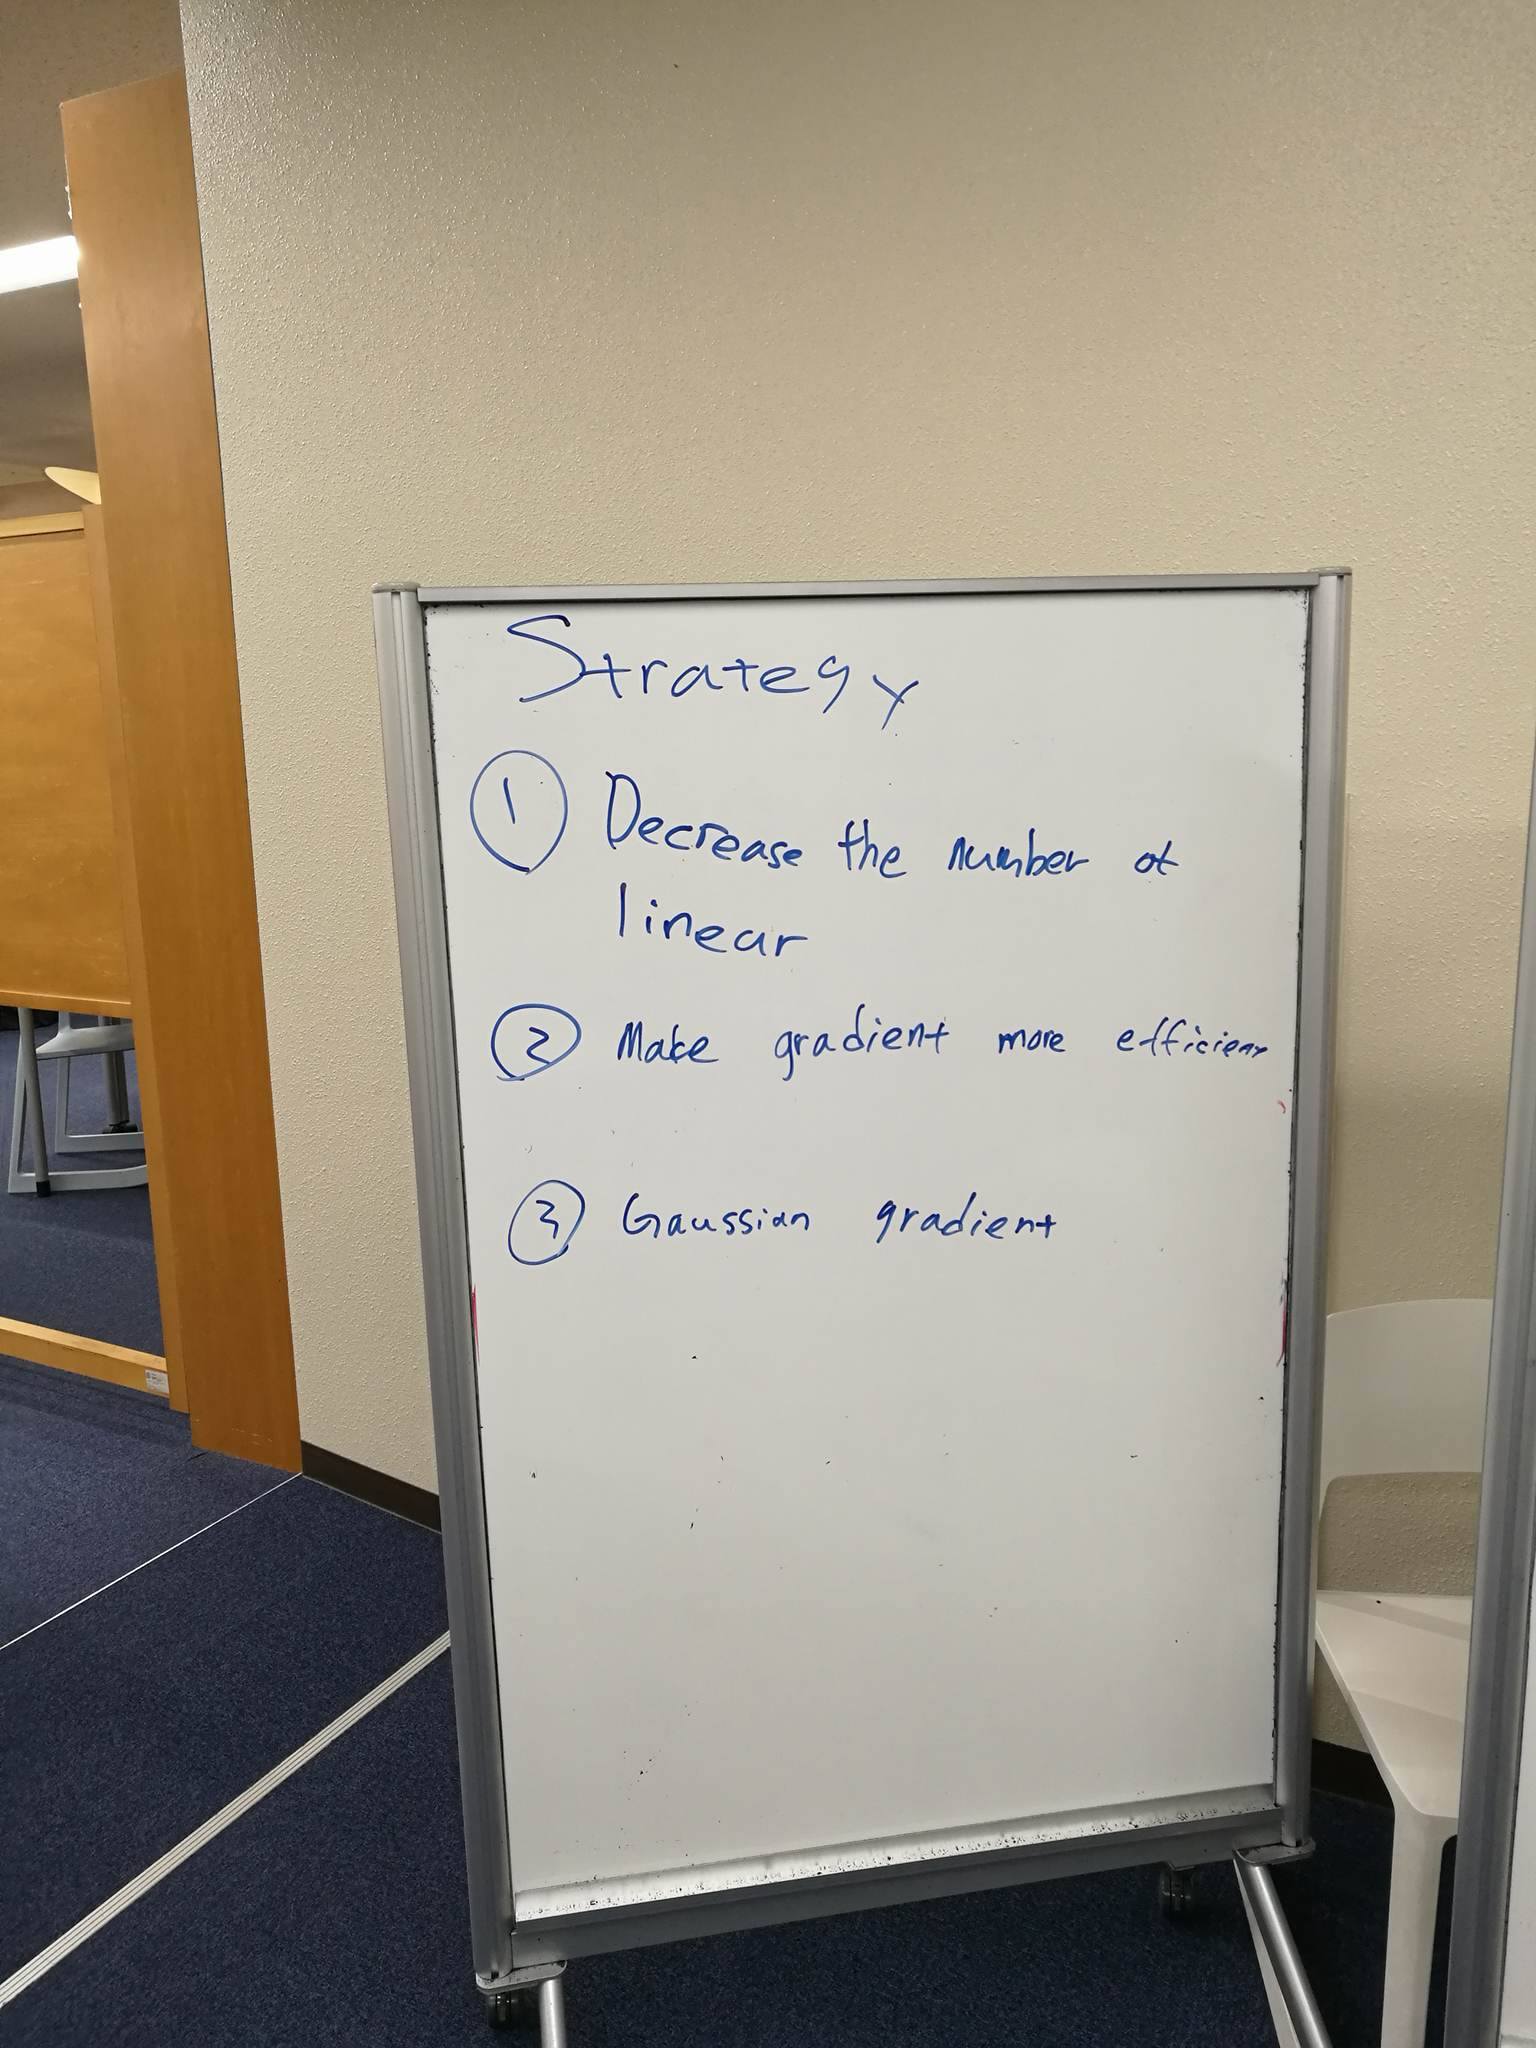 Strategy
① Decrease the number of
linear
② Make gradient more efficient
③ Gaussian gradient